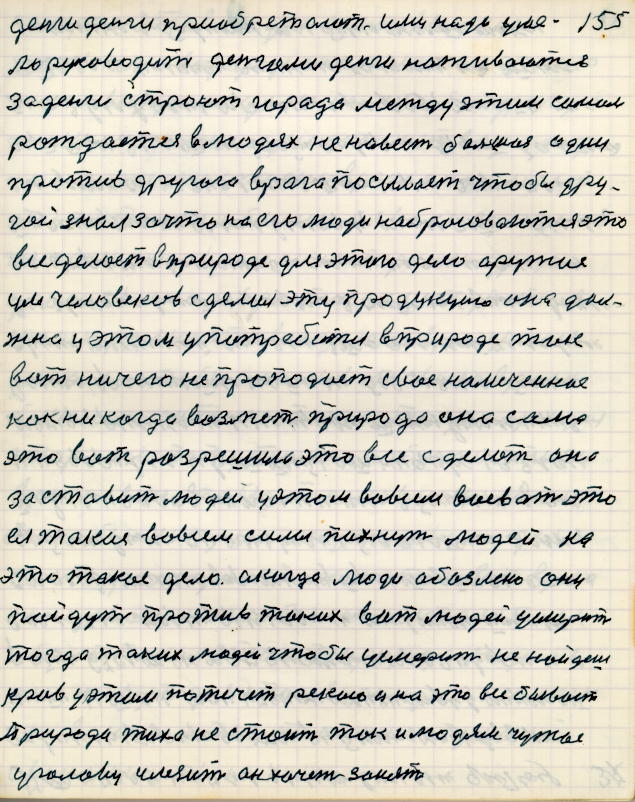 денги денги приобретают. ими надо уме- 155
ло руководить денгами денги наживаются
заденги строют города между этим самим
рождается влюдях ненавест болшая одни
против другога врага посылает чтобы дру-
гой знал зачто нанего люди набросоваются это
все делает вприроде для этого дело аружие
ум человеков сделал эту продукцию она дол-
жна у этом употребится вприроде так
вот ничего непроподает свое намеченное
как никогда возмет природа она сама
это вот разрешила это все сделат она
заставит людей уэтом вовсем воеват это
ея такая вовсем сила пихнут людей на
это такое дело. акогда люди обозлено они
пойдут против таких вот людей усмирят
тогда таких людей чтобы усмерит не найдеш
кров уэтим потечет рекою она это все бывает
Природа тиха не стоит так илюдям чужое
уголову илезит онхочет занят